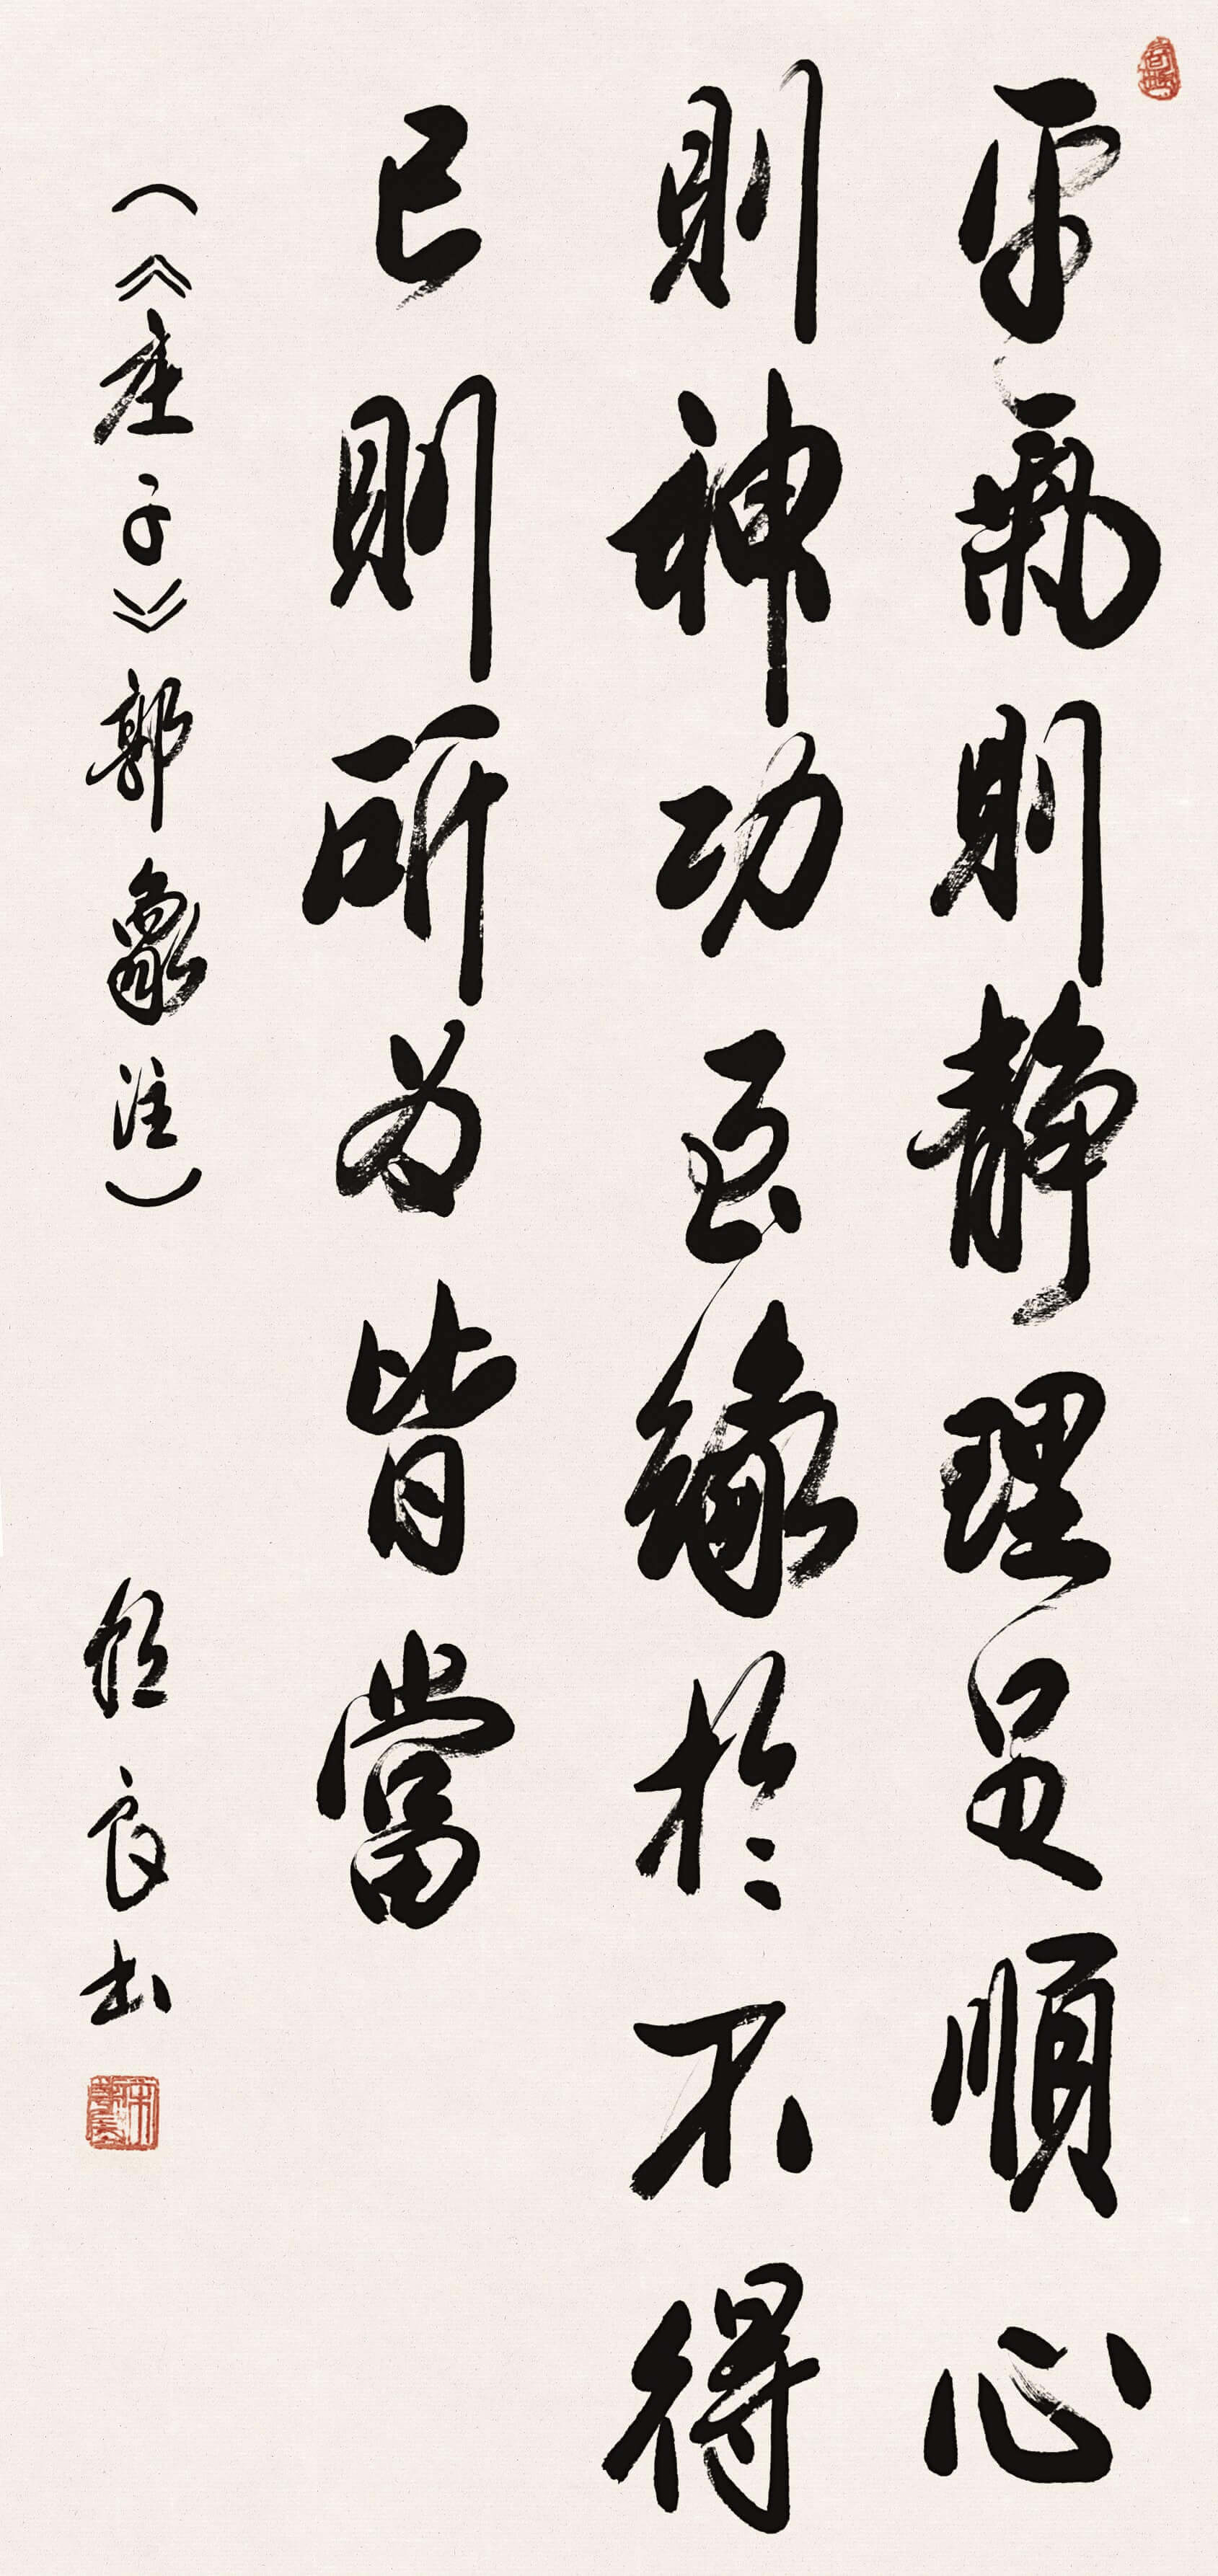 平氣則靜理足順心
則神功至緣於不得
已則所為皆當
（《莊子》郭象注）
良書